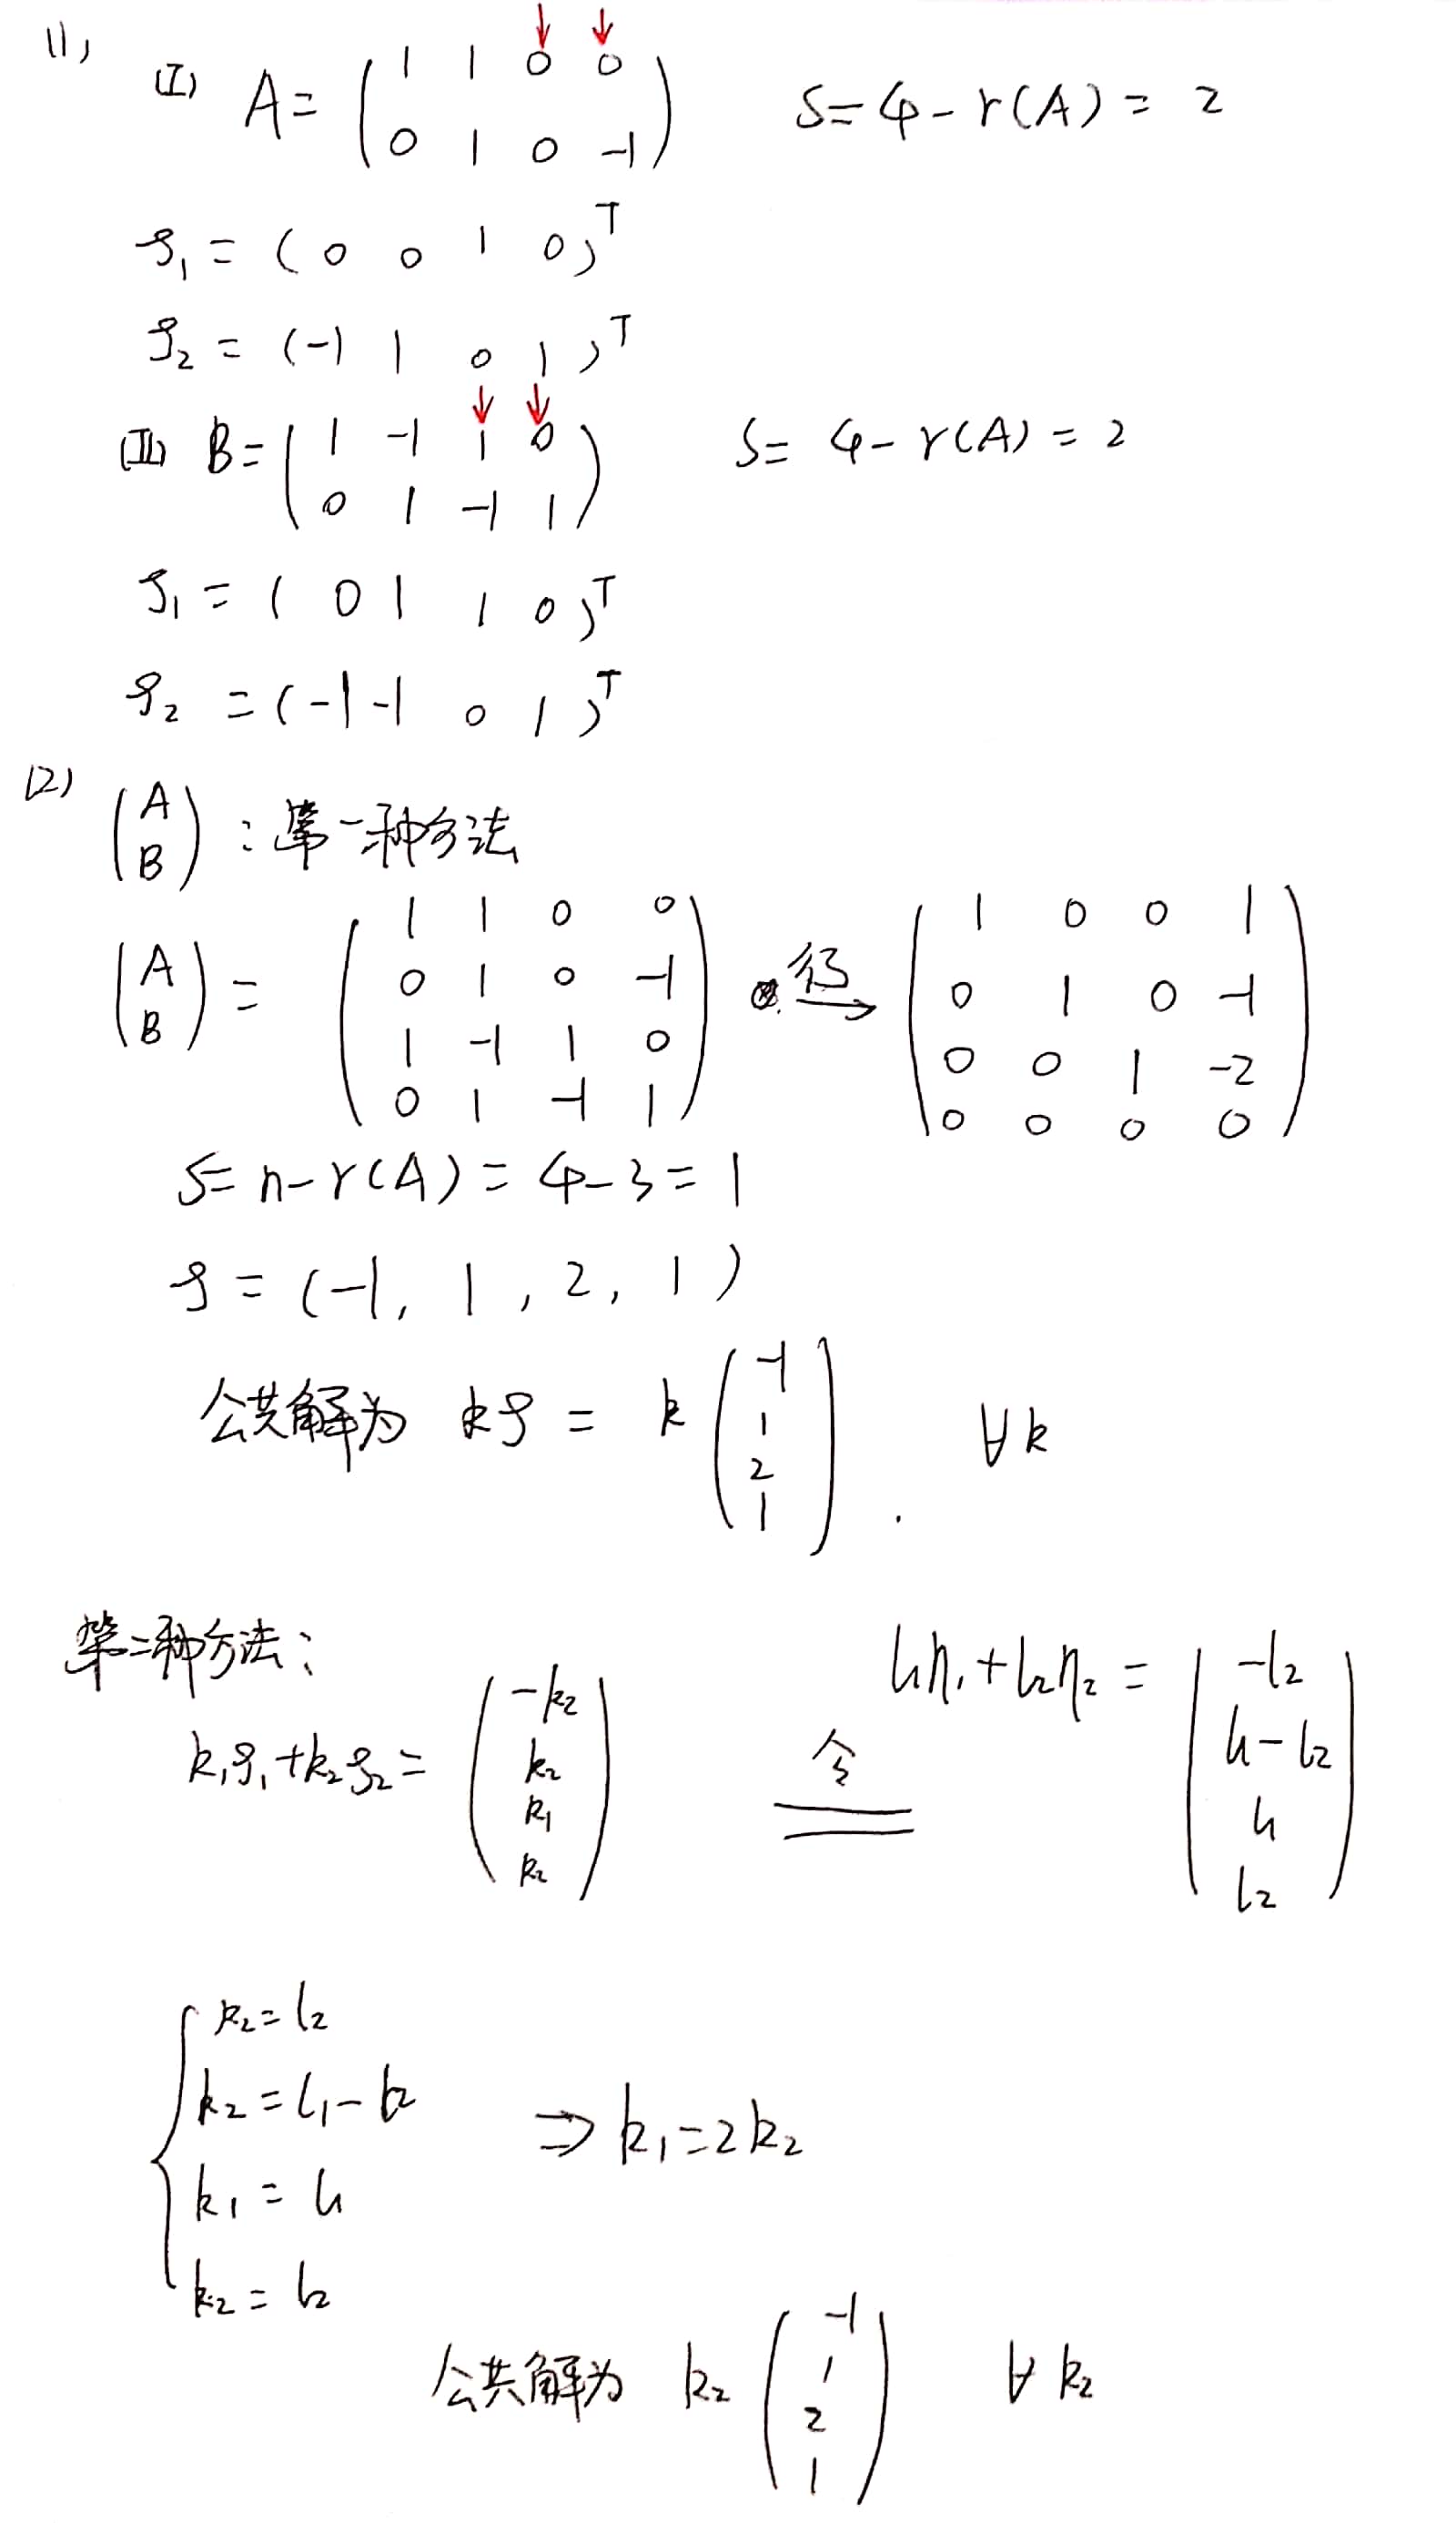 (1)
(I) A= ( 1 1 0 0 S=4-r(A)=2
0 1 0 -1 )
ξ₁ = ( 0 0 1 0 )ᵀ
ξ₂ = (-1 1 0 1 )ᵀ
(II) B= ( 1 -1 1 0 S= 4-r(A)=2
0 1 -1 1 )
ξ₁ = ( 0 1 1 0 )ᵀ
ξ₂ = (-1 -1 0 1 )ᵀ
(2) ( A
B ) : 第一种方法
( A
B ) =
( 1 1 0 0
0 1 0 -1
1 -1 1 0
0 1 -1 1 )
行→
( 1 0 0 1
0 1 0 -1
0 0 1 -2
0 0 0 0 )
S= n-r(A) = 4-3=1
ξ = (-1, 1, 2, 1)
公共解为 kξ = k ( -1 1 2 1 ) . ∀k
第二种方法:
k₁ξ₁+k₂ξ₂= ( -k₂ k₂ k₁ k₂ ) 令 l₁η₁+l₂η₂ = ( -l₂ l₁-l₂ l₁ l₂ )
k₂=l₂
k₂=l₁-l₂
⇒ k₁=2k₂
k₁=l₁
k₂=l₂
公共解为 k₂ ( -1 1 2 1 ) ∀ k₂